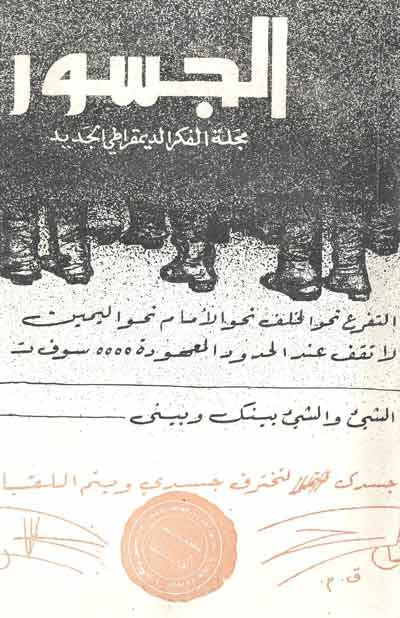 الجسور
مجلة الفكر الديمقراطي الجديد
التفرع نحو الخلف نحو الأمام نحو اليمين
لا تقف عند الحدود المعهودة ٥٥٥٥ سوف ت
الشيئ والشيئ بينك وبيني
جسدك لتخترق جسدي ويتم اللقا
ق.م.